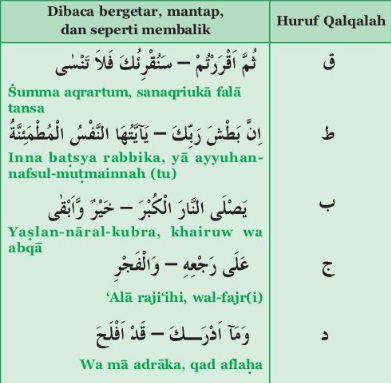 Dibaca bergetar, mantap,
dan seperti membalik
Huruf Qalqalah
ثُمَّ اَقْرَرْتُمْ – سَنُقْرِئُكَ فَلَا تَنْسٰى
ق
Ṡumma aqrartum, sanaqriukā falā
tansa
اِنَّ بَطْشَ رَبِّكَ – يَآيَّتُهَا النَّفْسُ الْمُطْمَئِنَّةُ
ط
Inna baṭsya rabbika, yā ayyuhan-
nafsul-muṭmainnah (tu)
يَصْلَى النَّارَ الْكُبْرَ – خَيْرٌ وَّاَبْقٰى
ب
Yaṣlan-nāral-kubra, khairuw wa
abqā
عَلَى رَجْعِهِ – وَالْفَجْرِ
ج
‘Alā raji‘ihi, wal-fajr(i)
وَمَآ اَدْرَـــكَ – قَدْ اَفْلَحَ
د
Wa mā adrāka, qad aflaḥa